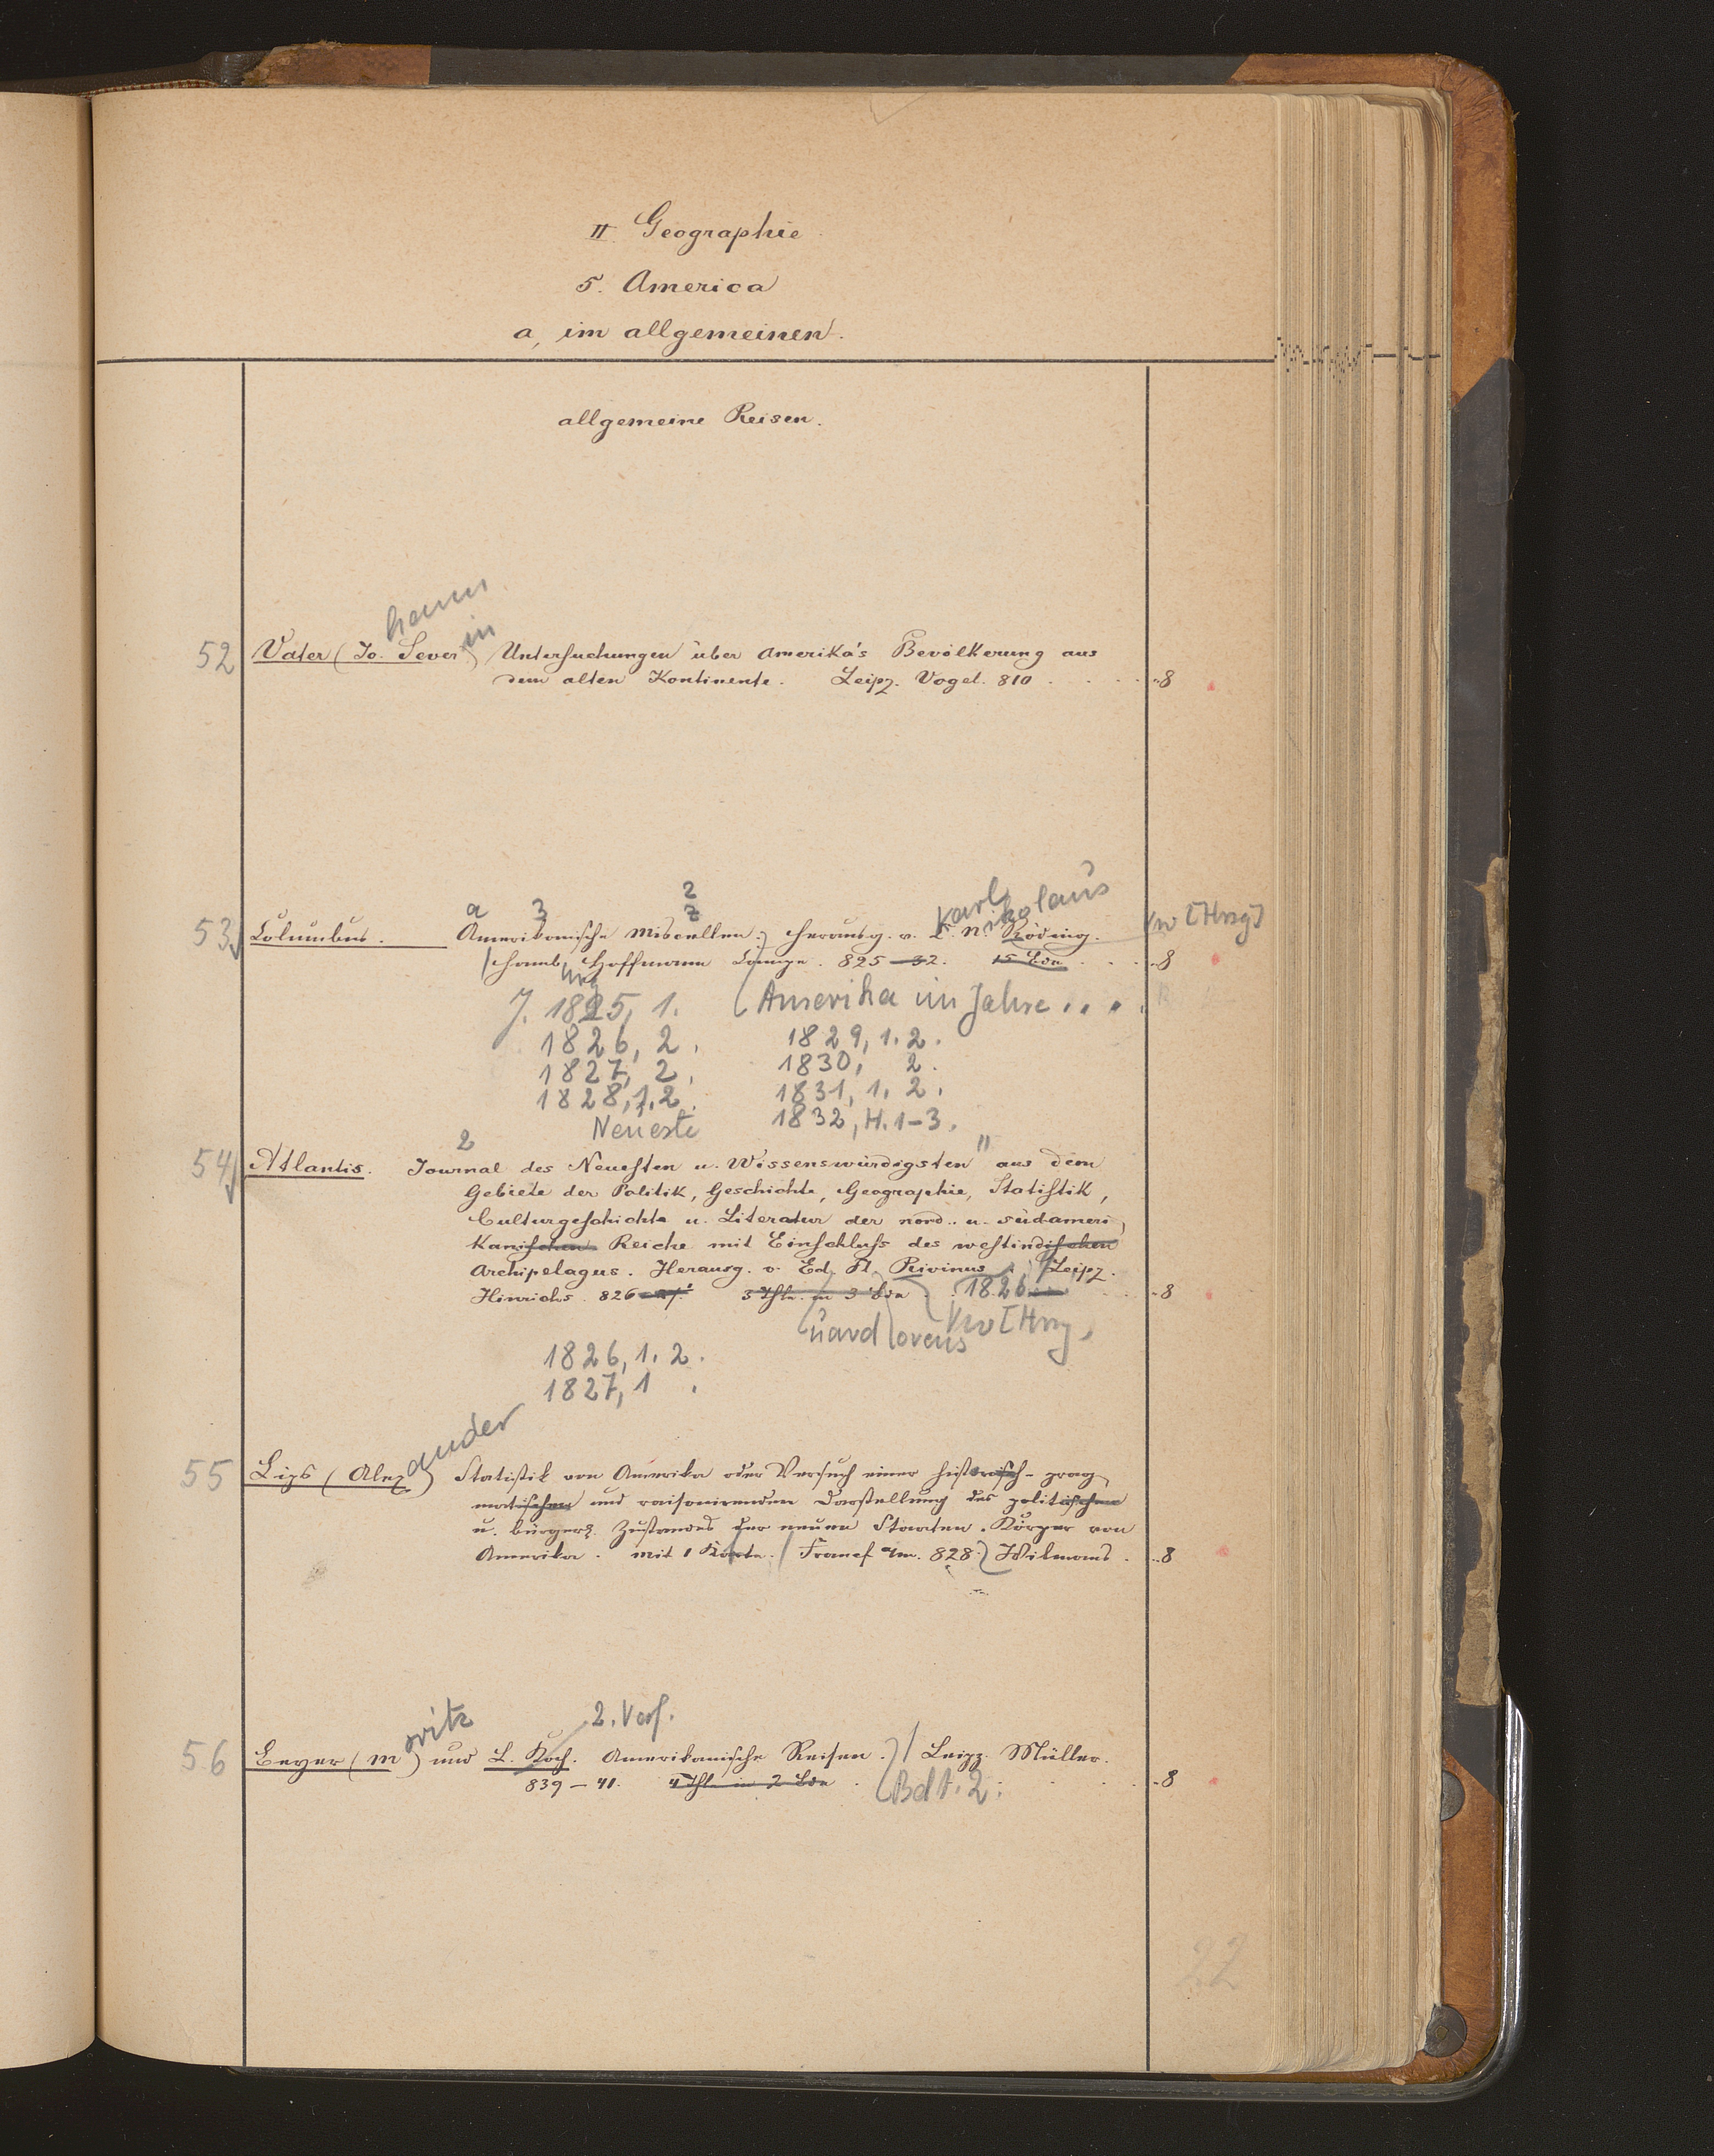 II. Geographie
5. America
a, im allgemeinen.
allgemeine Reisen.
hann
in
52 Vater (Jo. Sever) Untersuchungen über Amerika's Bevölkerung aus
dem alten Kontinente. Leipz. Vogel. 810 . . . . . 8
2
a 3 z Karl ikolaus
53 Columbus. Amerikanische Miscellen. herausg. v. C. N. Röding. [Hrsg]
Hamb. Hoffmann Campe. 825-32. 15 Bde . . . 8
J. 1825, 1. (Amerika im Jahre . . . .
1826, 2. 1829, 1. 2.
1827, 2. 1830, 2.
1828, 1. 2. 1831, 1. 2.
Neueste 1832, H. 1-3.
2 "
54 Atlantis. Journal des Neuesten u. Wissenswürdigsten aus dem
Gebiete der Politik, Geschichte, Geographie, Statistik,
Culturgeschichte u. Literatur der nord- u. südameri
kanischen Reiche mit Einschluss des westindischen
Archipelagus. Herausg. v. Ed. Fl. Rivinus. Leipz.
Hinrichs. 826-27. 3 Thle. in 3 Bde 1826 8
uard lorens [Hrsg.
1826, 1. 2.
1827, 1 .
ander
55 Lips (Alex) Statistik von Amerika oder Versuch einer historisch-prag
matischen und raisonirenden Darstellung des politischen
u. bürgerl. Zustandes der neuen Staaten-Körper von
Amerika. mit 1 Karte. (Francf a/m. 828.) Wilmans. . 8
oritz 2. Verf.
56 Beyer (M) und L. Koch. Amerikanische Reisen. Leipz. Müller.
839-41. 4 Thl. in 2 Bde . (Bd 1. 2. . . . . 8
22